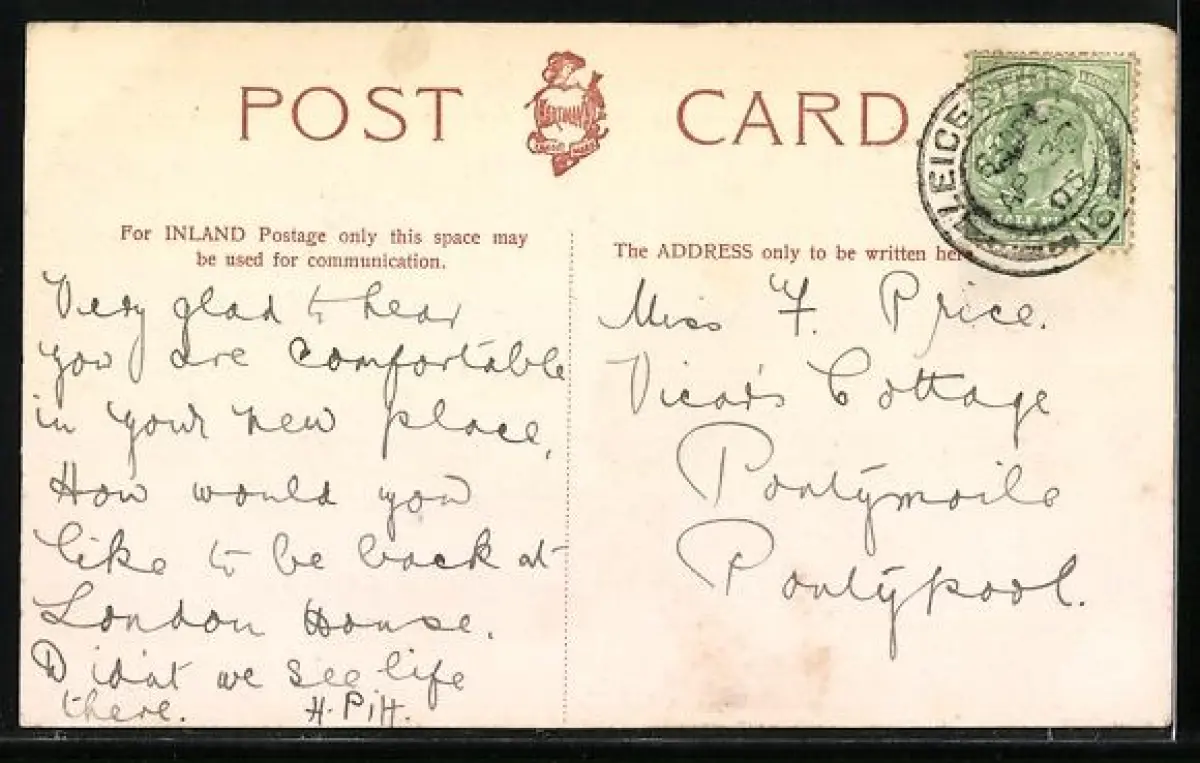 POST CARD
HARTMANN
TRADE MARK
LEICESTER
AP 05
HALF
For INLAND Postage only this space may
be used for communication.
The ADDRESS only to be written here
Very glad to hear
you are comfortable
in your new place,
How would you
like to be back at
London House.
Didn't we see life
there. H. Pitt.
Miss F. Price.
Vicar's Cottage
Pontymoile
Pontypool.